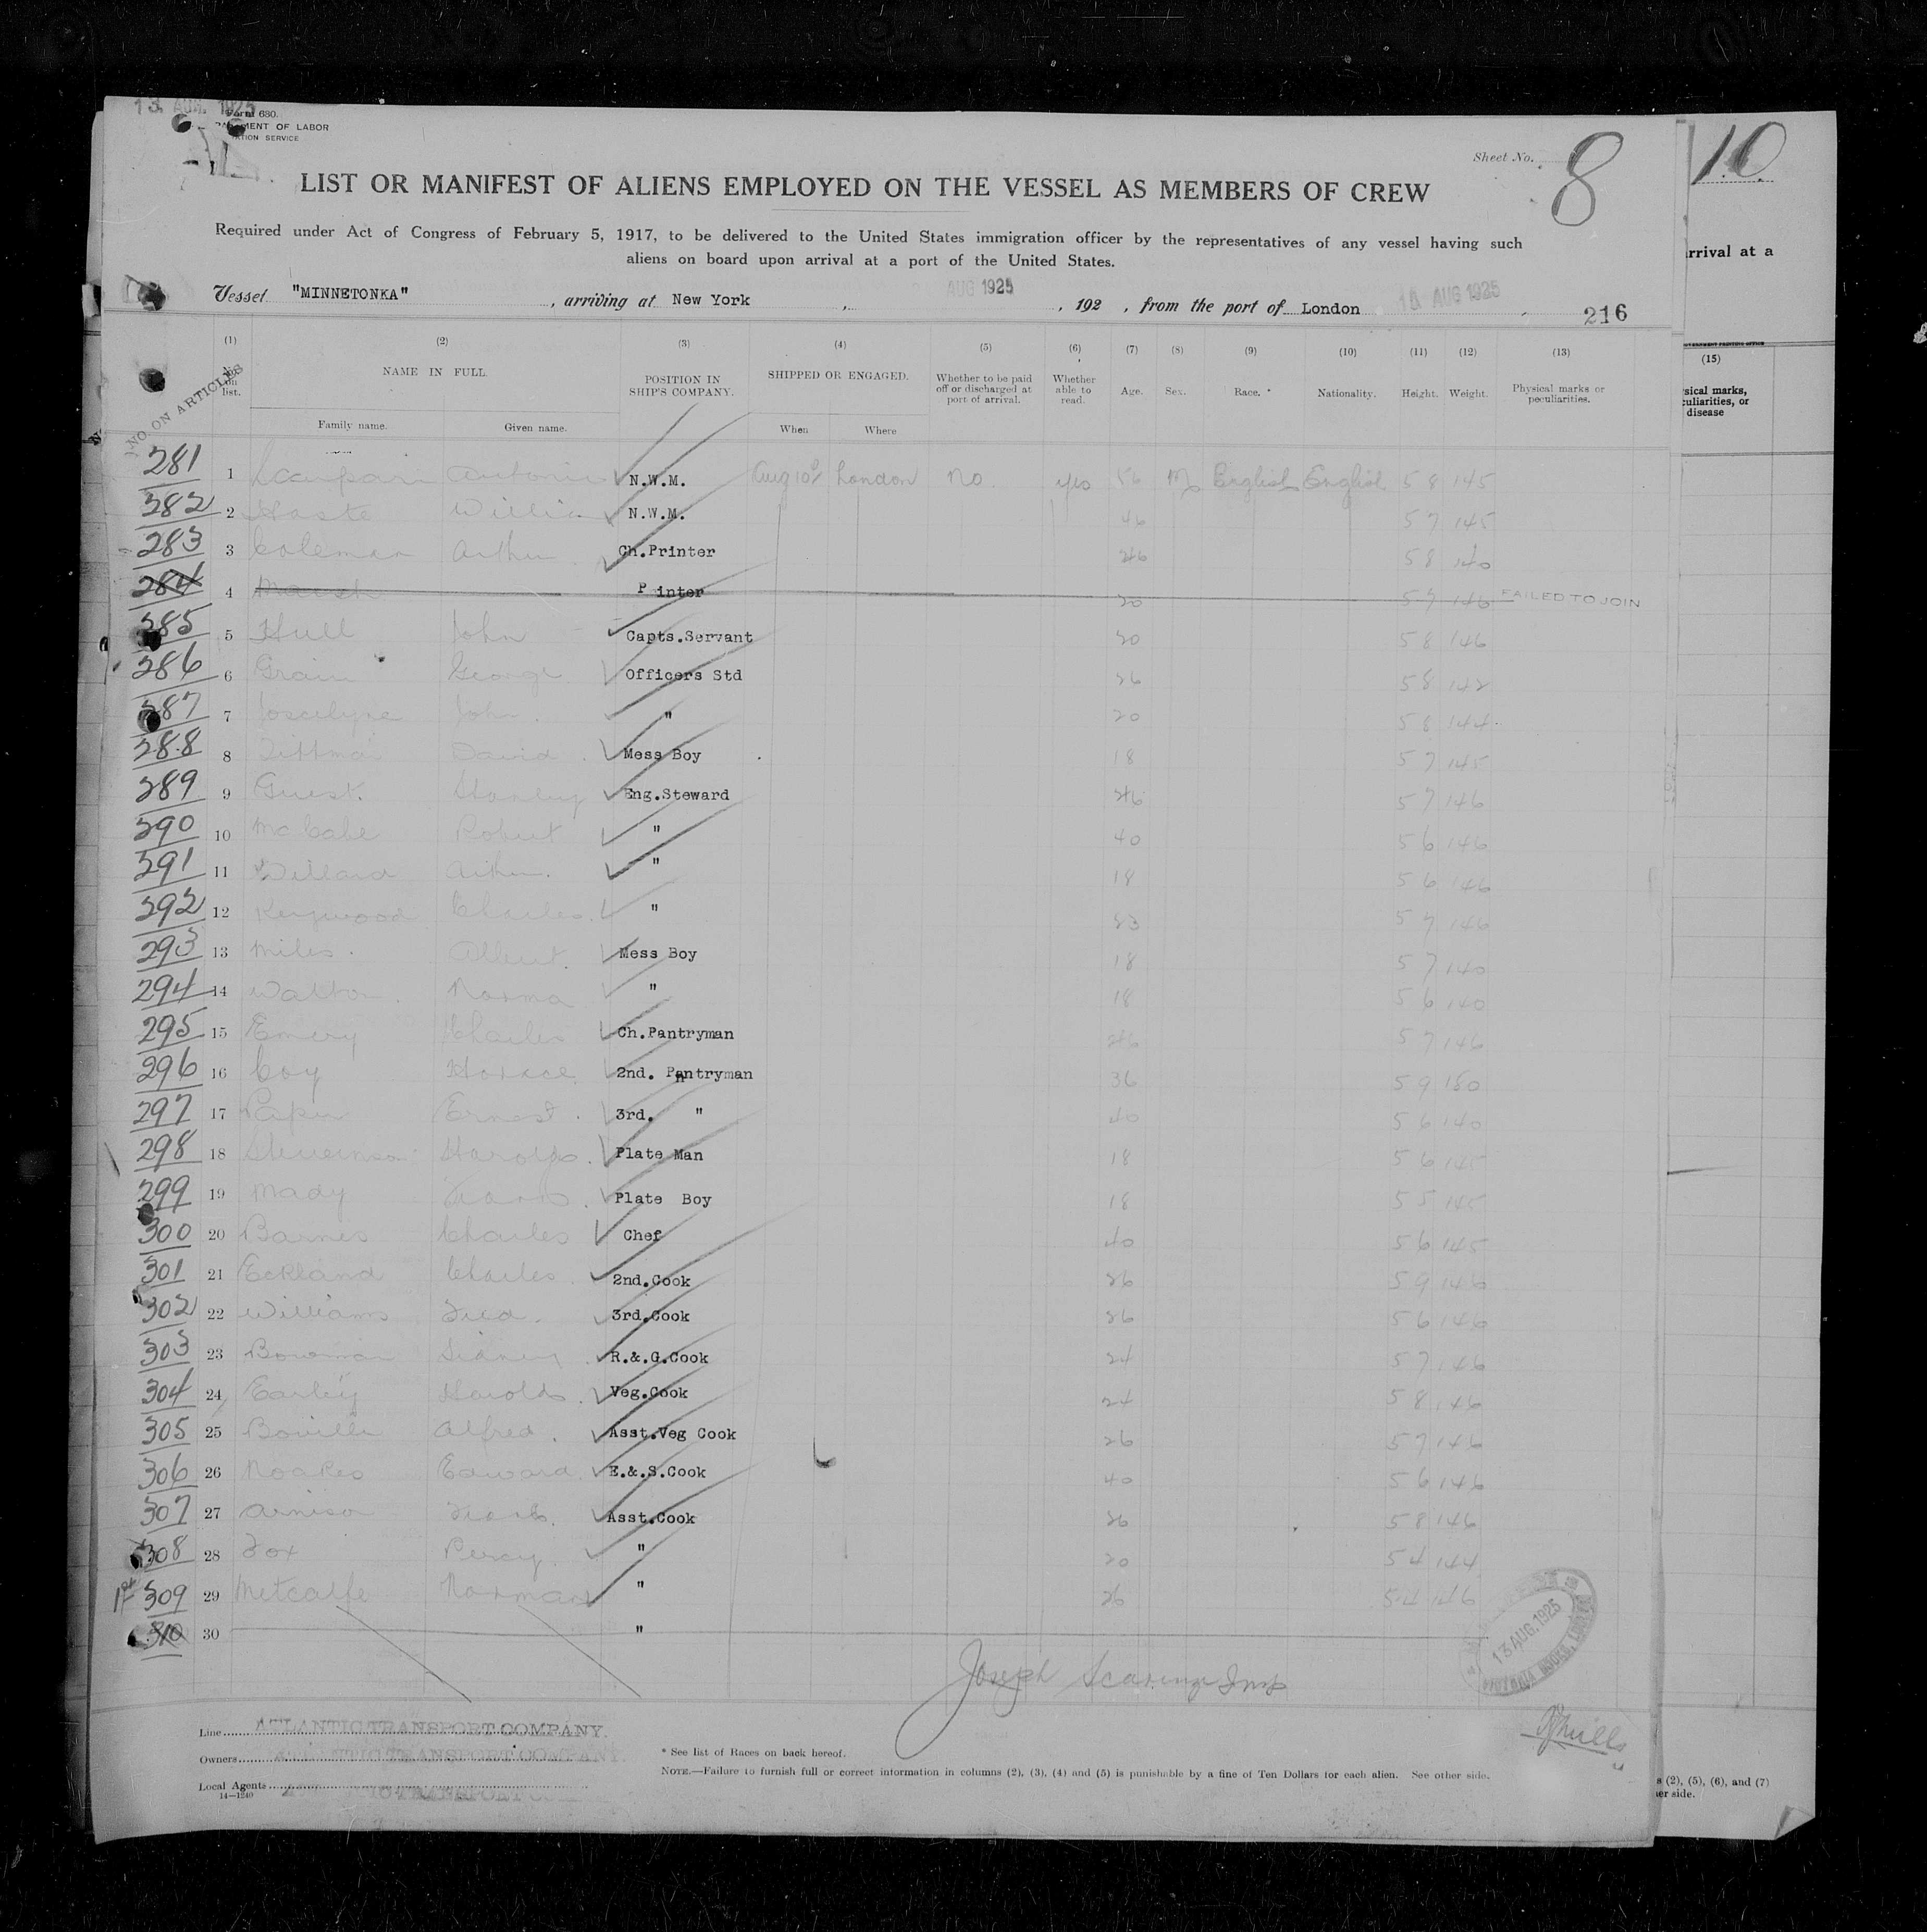 13 AUG. 1925
Form 680.
MENT OF LABOR
SERVICE
Sheet No. 8
LIST OR MANIFEST OF ALIENS EMPLOYED ON THE VESSEL AS MEMBERS OF CREW
Required under Act of Congress of February 5, 1917, to be delivered to the United States immigration officer by the representatives of any vessel having such
aliens on board upon arrival at a port of the United States.
Vessel "MINNETONKA", arriving at New York, AUG 1925, 192 , from the port of London AUG 1925
216
NO. ON ARTICLES
(1) (2) (3) (4) (5) (6) (7) (8) (9) (10) (11) (12) (13)
No. on list. NAME IN FULL. POSITION IN SHIP'S COMPANY. SHIPPED OR ENGAGED. Whether to be paid off or discharged at port of arrival. Whether able to read. Age. Sex. Race. * Nationality. Height. Weight. Physical marks or peculiarities.
Family name. Given name. When Where
281 1 N.W.M. Aug 10 London No. yes 56 M English English 5 8 145
282 2 Haste N.W.M. 46 5 7 145
283 3 Coleman Arthur Ch.Printer 5 8 140
284 4 Marsh P inter 20 5 7 146 FAILED TO JOIN
285 5 Hull John Capts.Servant 20 5 8 146
286 6 George Officers Std 5 8
287 7 Joscelyne John " 20 5 8 144
288 8 David Mess Boy 18 5 7 145
289 9 Guest Stanley Eng.Steward 5 7 146
290 10 McCabe Robert " 40 5 6 146
291 11 Willard Arthur " 18 5 6 146
292 12 Keywood Charles " 5 7 146
293 13 Miles Albert Mess Boy 18 5 7 140
294 14 Norma " 18 5 6 140
295 15 Emery Charles Ch.Pantryman 5 7 146
296 16 Coy Horace 2nd. Pantryman 36 5 9 150
297 17 Ernest 3rd. " 40 5 6 140
298 18 Harold Plate Man 18 5 6 145
299 19 Mady Plate Boy 18 5 5 145
300 20 Barnes Charles Chef 40 5 6 145
301 21 Eckland Charles 2nd.Cook 5 9 146
302 22 Williams Fred 3rd.Cook 5 6 146
303 23 Bowman Sidney R.&.G.Cook 24 5 7 146
304 24 Earley Harold Veg.Cook 24 5 8 146
305 25 Alfred Asst.Veg Cook 26 5 7 146
306 26 Noakes Edward E.&.S.Cook 40 5 6 146
307 27 Arnison Asst.Cook 26 5 8 146
308 28 Fox Percy " 20 5 4 144
309 29 Metcalfe Norman " 26 5 4 146
310 30 "
Joseph Insp
13 AUG. 1925
Line ATLANTIC TRANSPORT COMPANY.
Owners ATLANTIC TRANSPORT COMPANY
* See list of Races on back hereof.
Local Agents
NOTE.—Failure to furnish full or correct information in columns (2), (3), (4) and (5) is punishable by a fine of Ten Dollars for each alien. See other side.
14—1240
10
arrival at a
(15)
sical marks,
culiarities, or
disease
s (2), (5), (6), and (7)
er side.